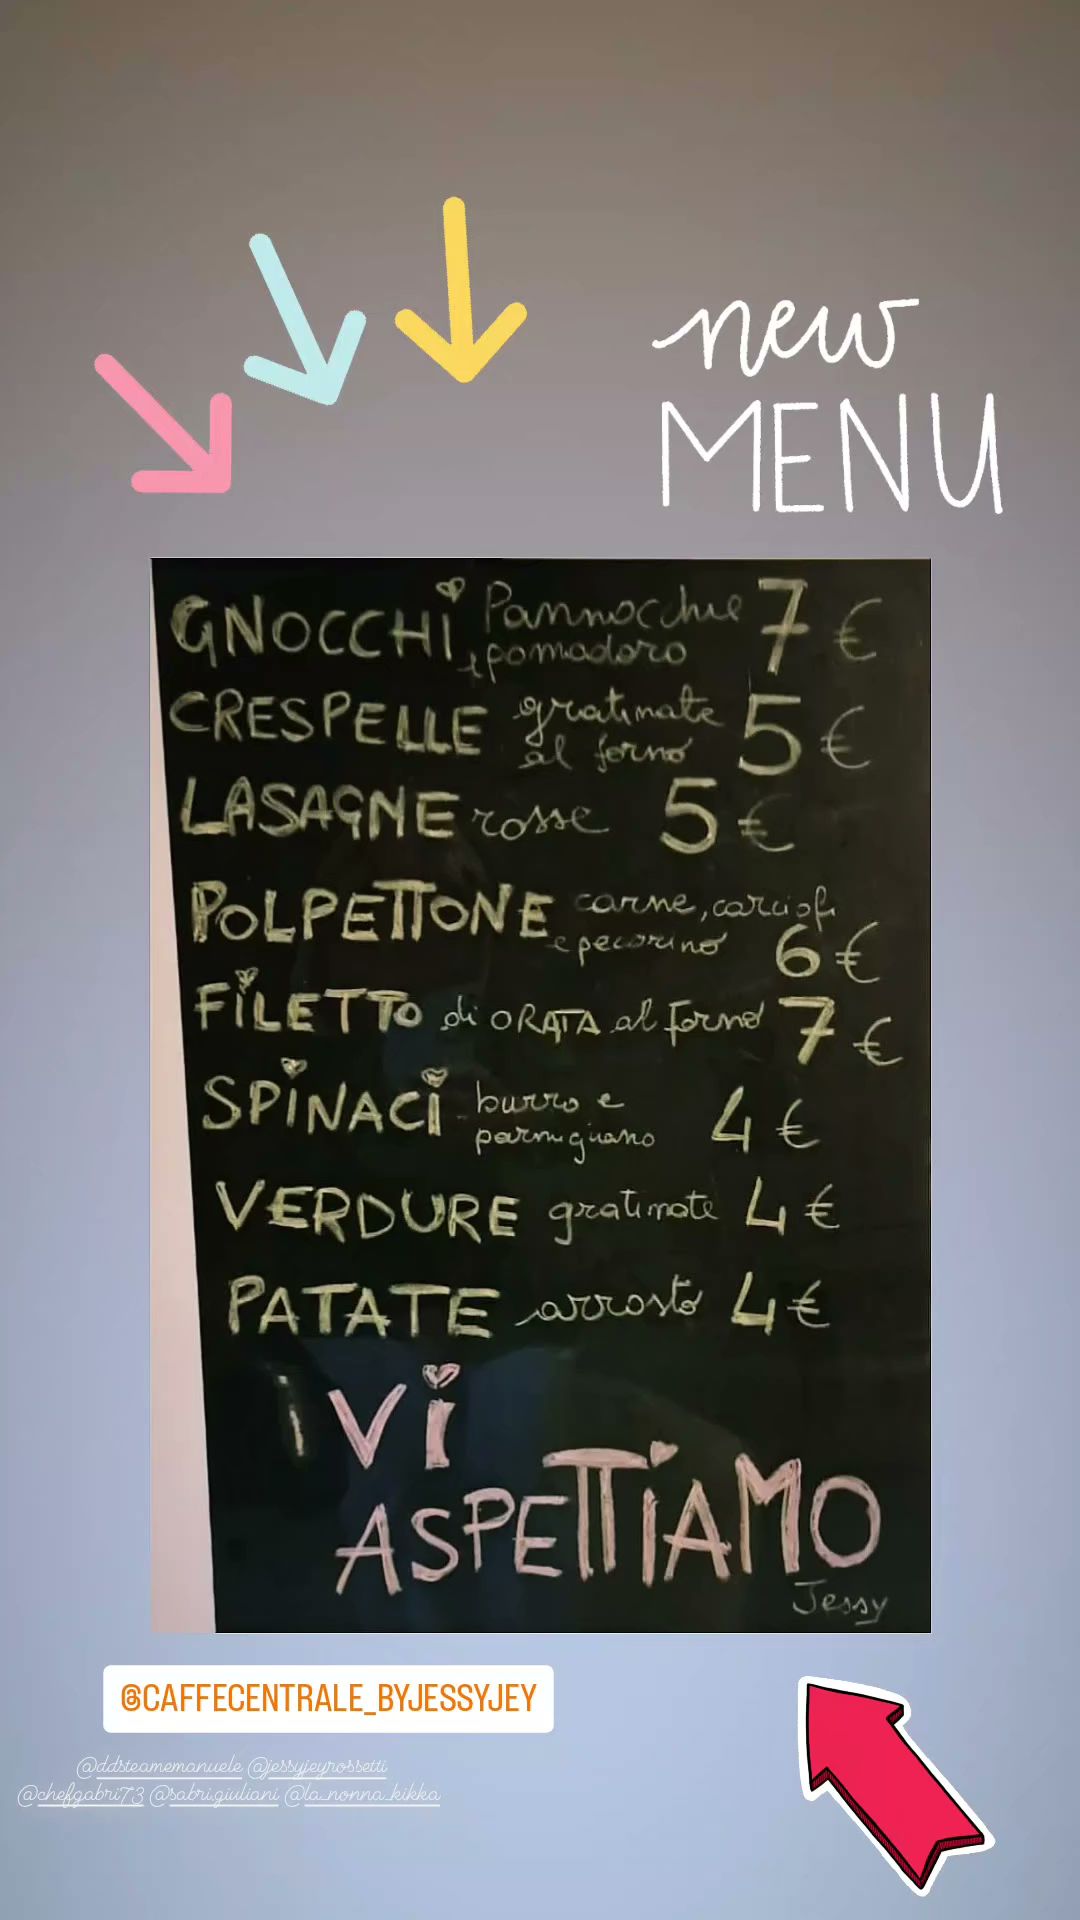 new
MENU
GNOCCHI Pannocchie 7 €
e pomodoro
CRESPELLE gratinate 5 €
al forno
LASAGNE rosse 5 €
POLPETTONE carne, carciofi
e pecorino 6 €
FILETTO di ORATA al forno 7 €
SPINACI burro e 4 €
parmigiano
VERDURE gratinate 4 €
PATATE arrosto 4 €
VI
ASPETTIAMO
Jessy
@CAFFECENTRALE_BYJESSYJEY
@ddsteamemanuele @jessyjeyrossetti
@chefgabri73 @sabri.giuliani @la_nonna_kikka